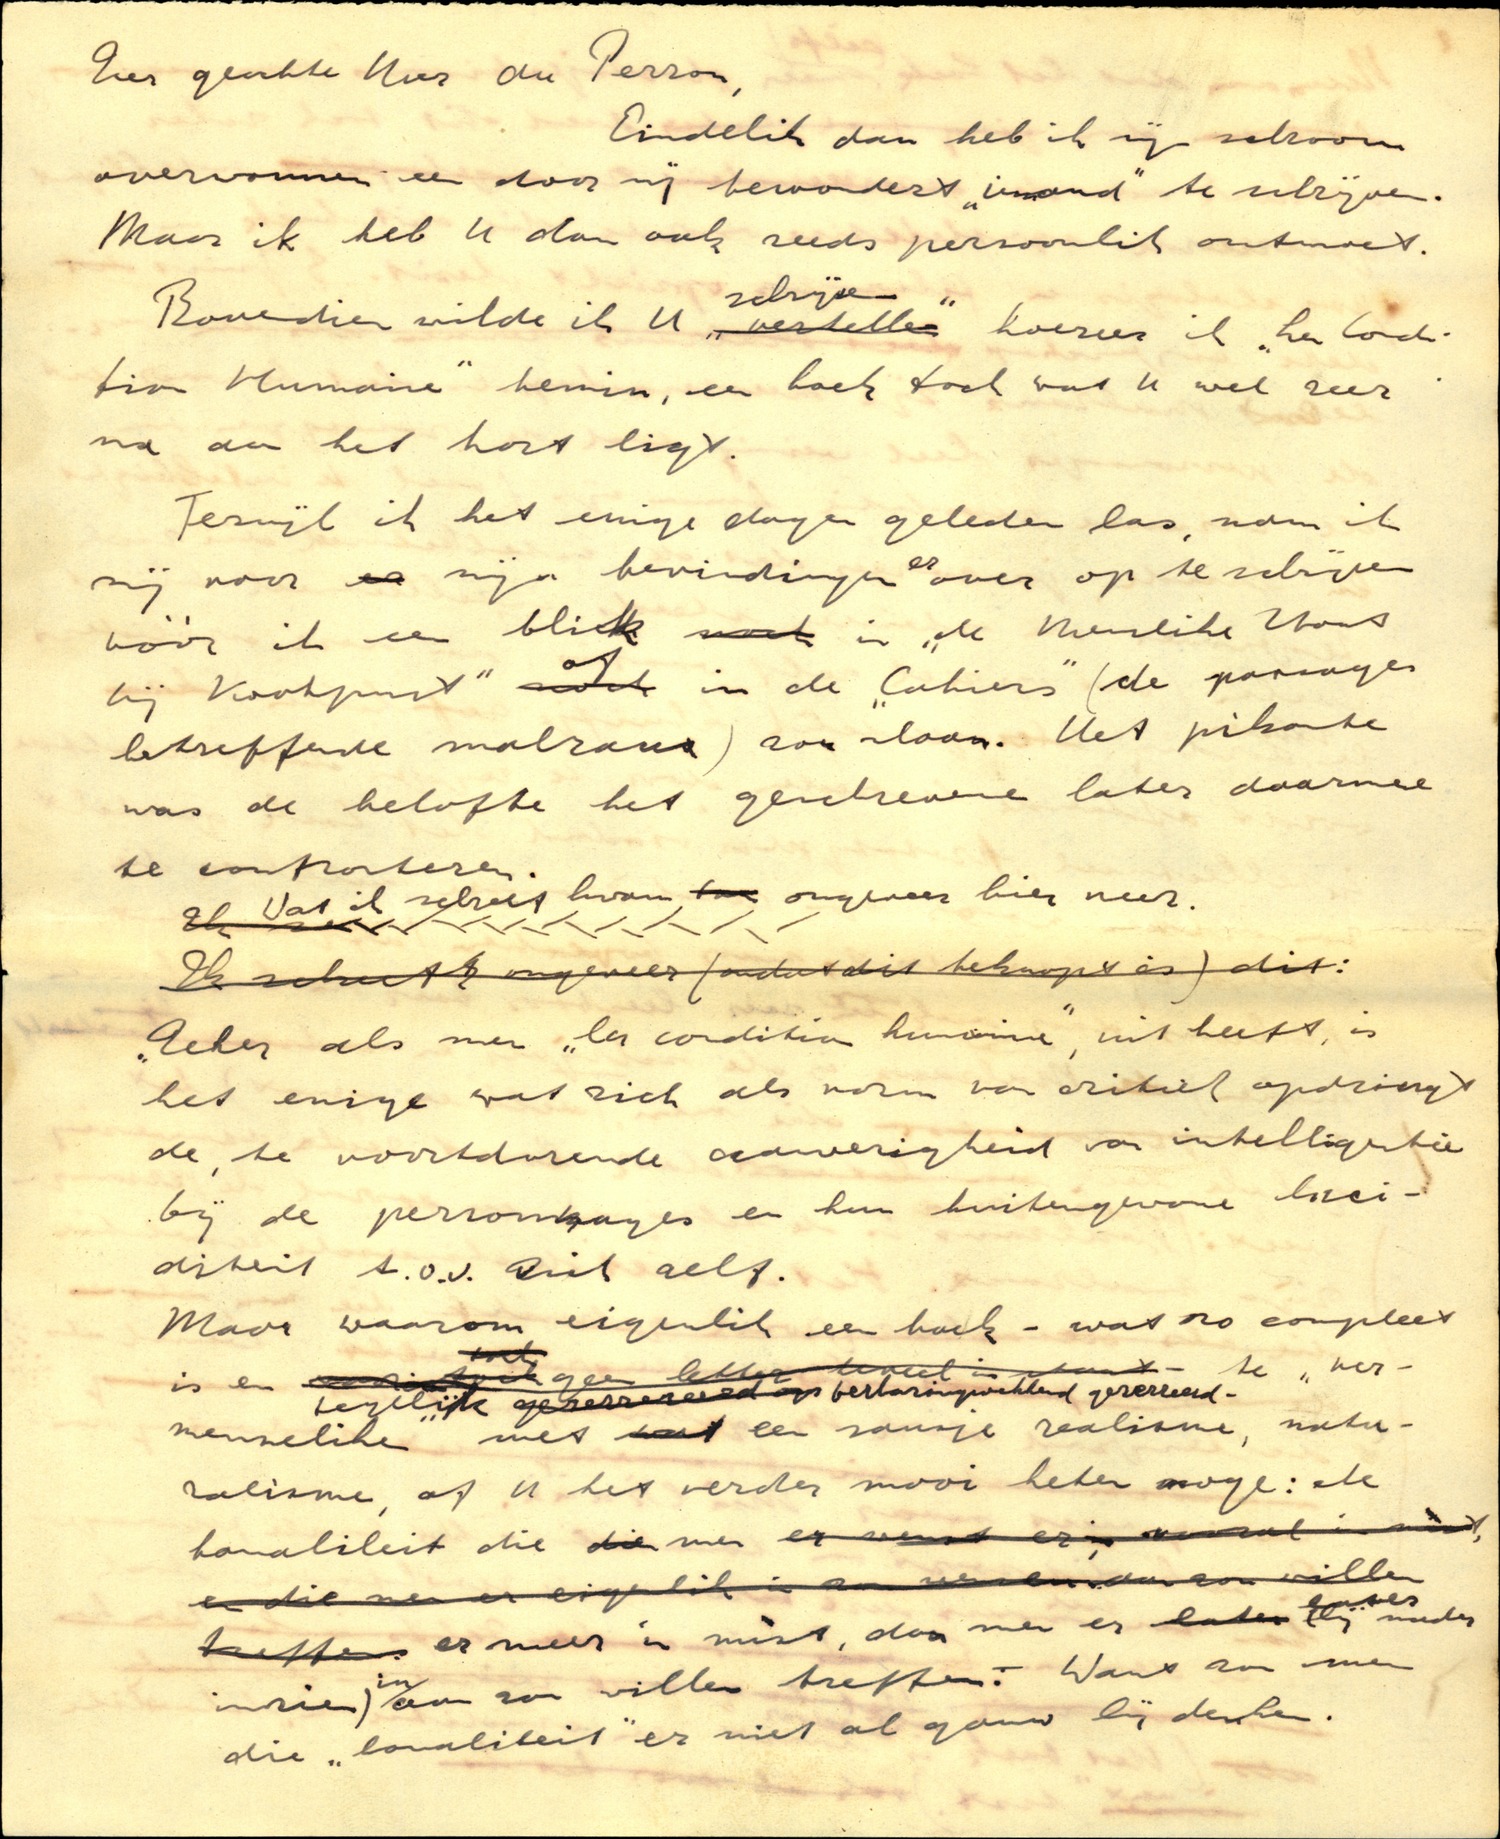 Zeer geachte Heer du Perron,
Eindelik dan heb ik mijn schroom
overwonnen een door mij bewonderd „iemand" te schrijven.
Maar ik heb U dan ook reeds persoonlik ontmoet.
schrijven
Bovendien wilde ik U „vertellen" hoezeer ik „La Condi-
tion Humaine" bemin, een boek toch wat U wel zeer
na aan het hart ligt.
Terwijl ik het enige dagen geleden las, nam ik
mij voor en mijn bevindingen er over op te schrijven
vóór ik een blik noch in „de Menselike Staat
bij Kaarspunt" of noch in de „Cahiers" (de passages
betreffende malraux) zou slaan. Het pikante
was de belofte het geschrevene later daarmee
te confronteren.
Wat ik schreef kwam toe ongeveer hier neer.
Ik schreef ongeveer (omdat dit beknopt is) dit:
„Zeker als men „la condition humaine", uit heeft, is
het enige wat zich als norm van critiek opdringt
de, te voortdurende aanwezigheid van intelligentie
bij de personnages en hun buitengewone luci-
diteit t.o.v. zich zelf.
Maar waarom eigenlik een boek - wat zo compleet
is en geen letter teveel in staat - te „ver-
tegelijk gereserveerd op verbazingwekkend gereserveerd -
menselike" met wat een sausje realisme, natu-
ralisme, of U het verder mooi heten moge: de
banaliteit die die men er
en die men er eigenlik in zou willen
treffen. er meer in mist, dan men er later (bij nader
inzien) in aan zou willen treffen. - Want zou men
die „banaliteit" er niet al gauw bij denken.